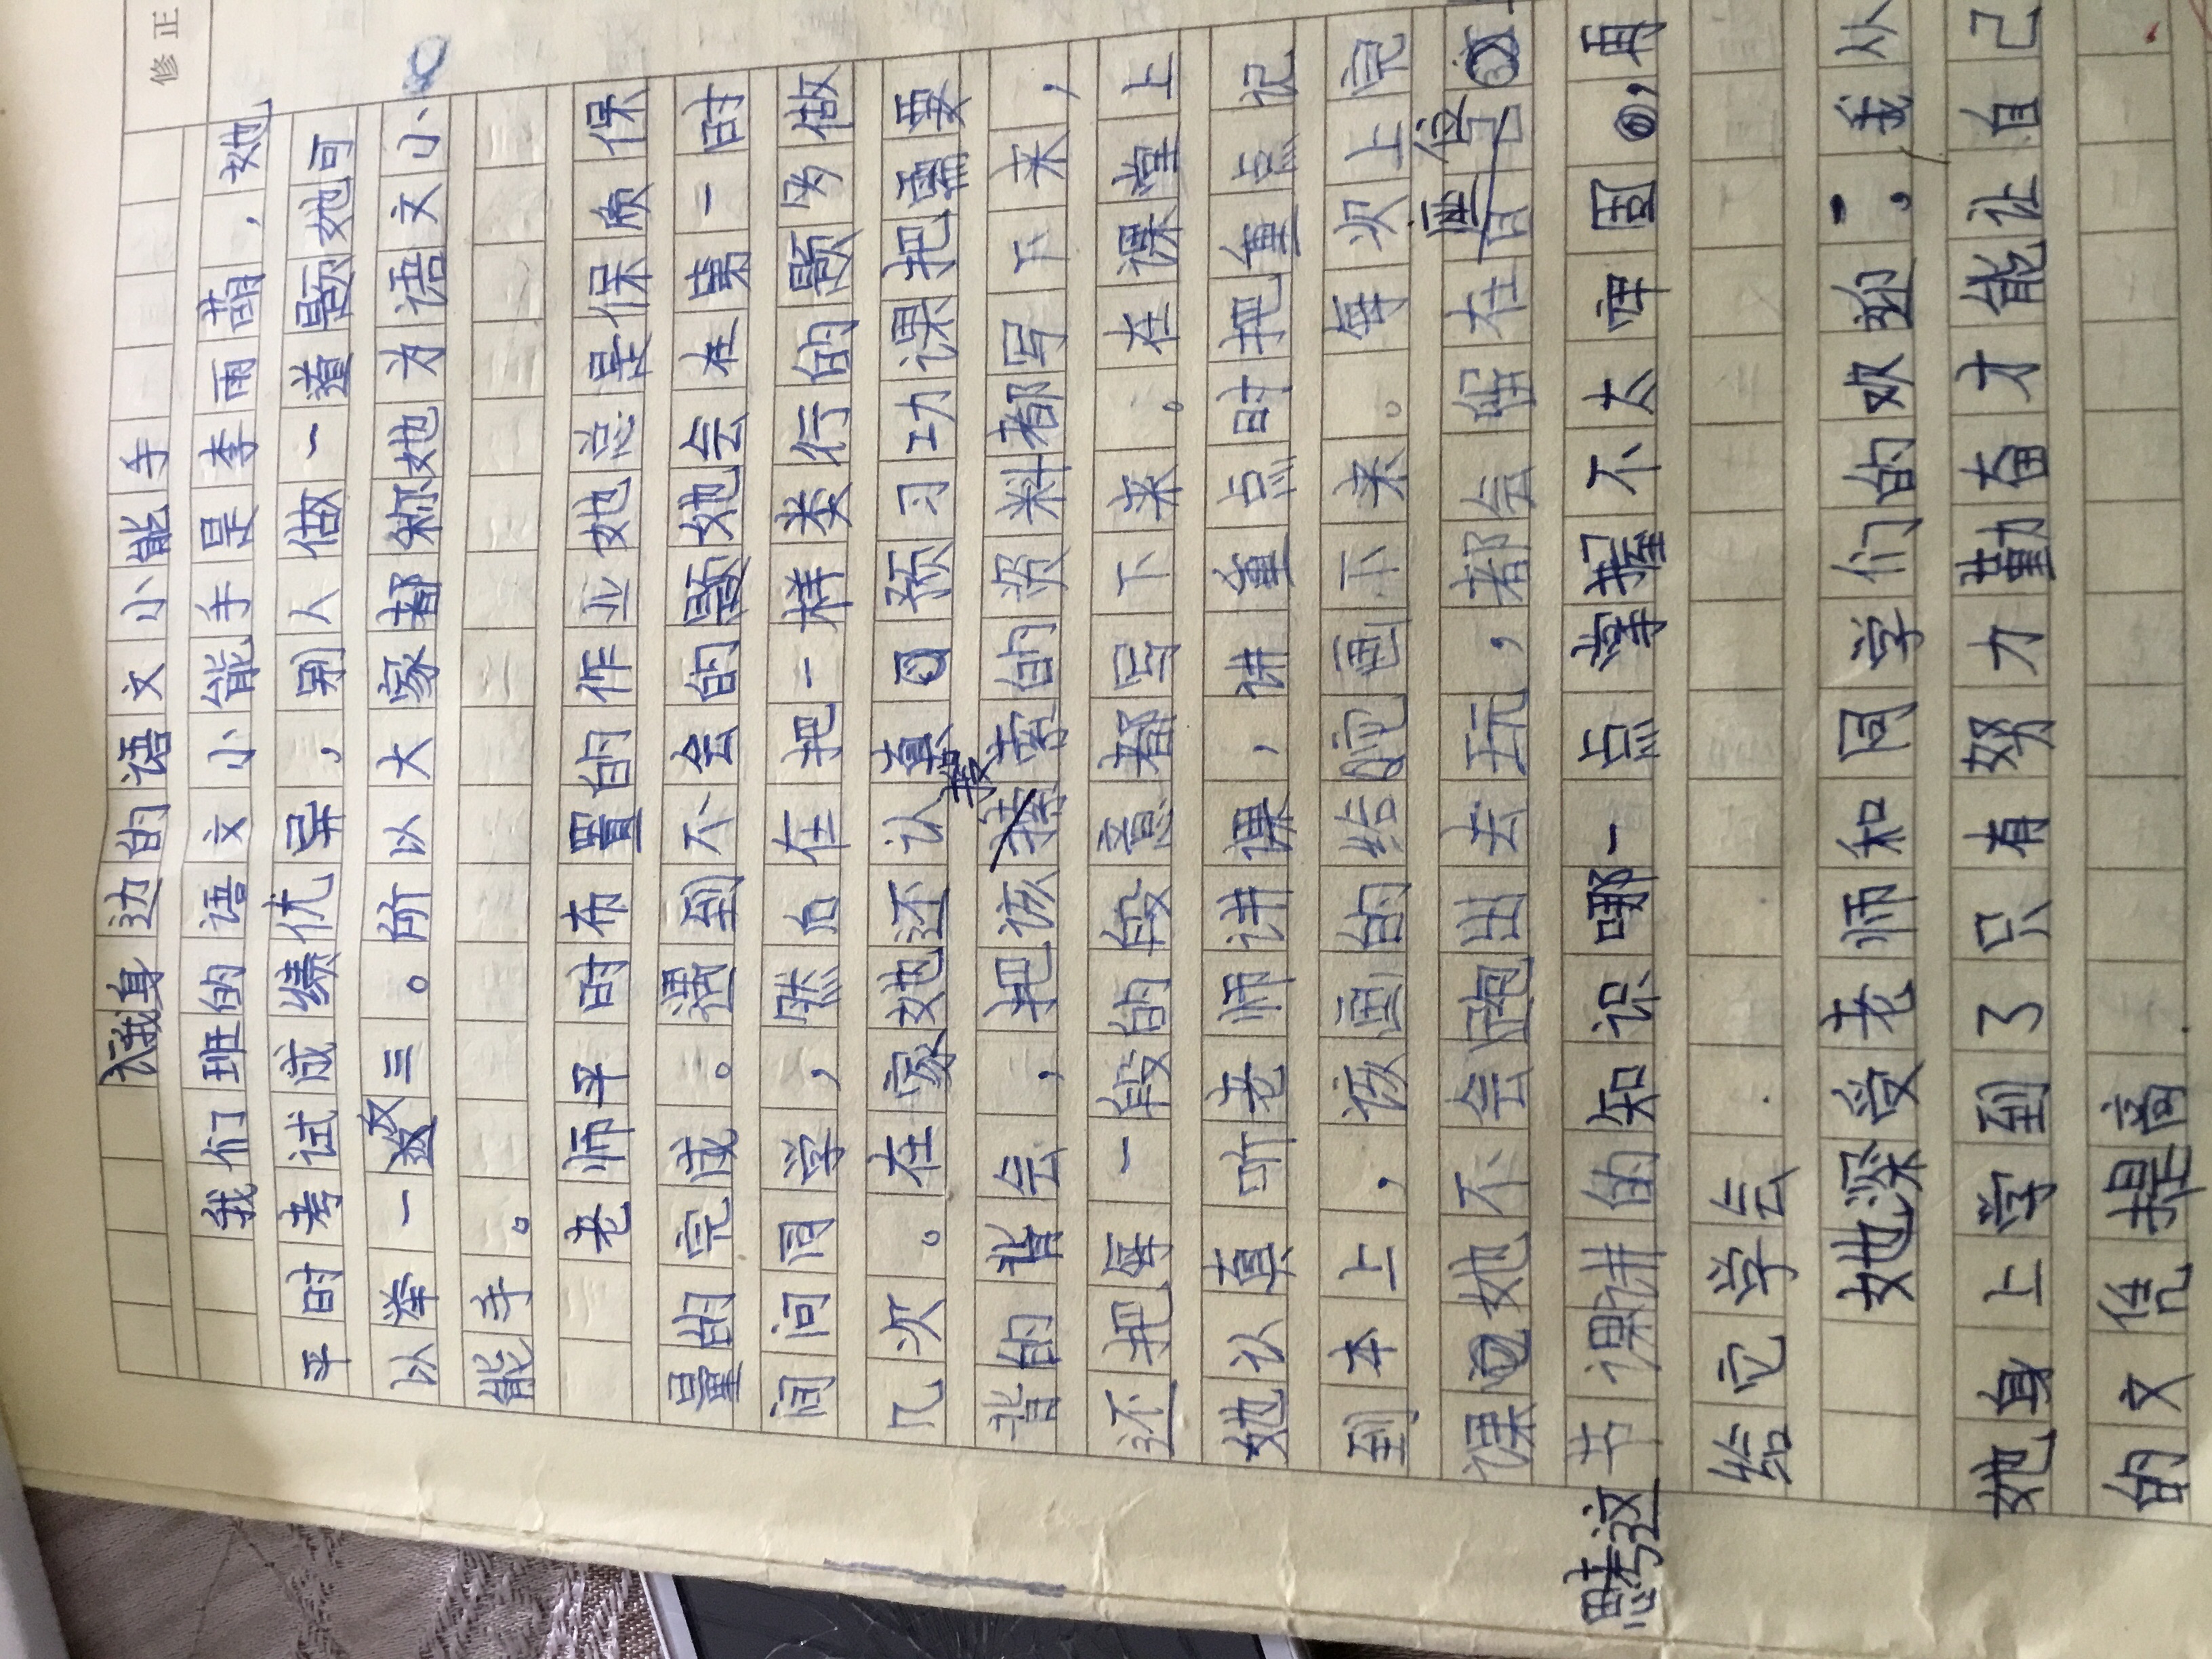 修正
我身边的语文小能手
我们班的语文小能手是李雨萌，她
平时考试成绩优异，别人做一道题她可
以举一反三。所以大家都称她为语文小
能手。
老师平时布置的作业她总是保质保
量的完成。遇到不会的题她会在第一时
间问同学，然后在把一样类行的题多做
几次。在家她还认真预习功课把需要
背的背会，把该搜索的资料都写下来，
还把每一段的段意都写下来。在课堂上
她认真听老师讲课，讲重点时把重点记
到本上，该画的给它画下来。每次上完
课她不会跑出去玩，都会坐在座位
思考这节课讲的知识哪一点掌握不太牢固，再
给它学会
她深受老师和同学们的欢迎，我从
她身上学到了只有努力勤奋才能让自己
的文凭提高